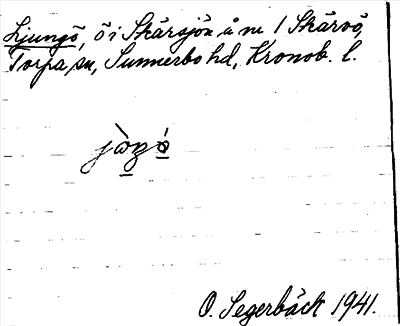 Ljungö, ö i Skärsjön å nr 1 Skärvö,
Torpa sn, Sunnerbo hd, Kronob. l.
O. Segerbäck 1941.